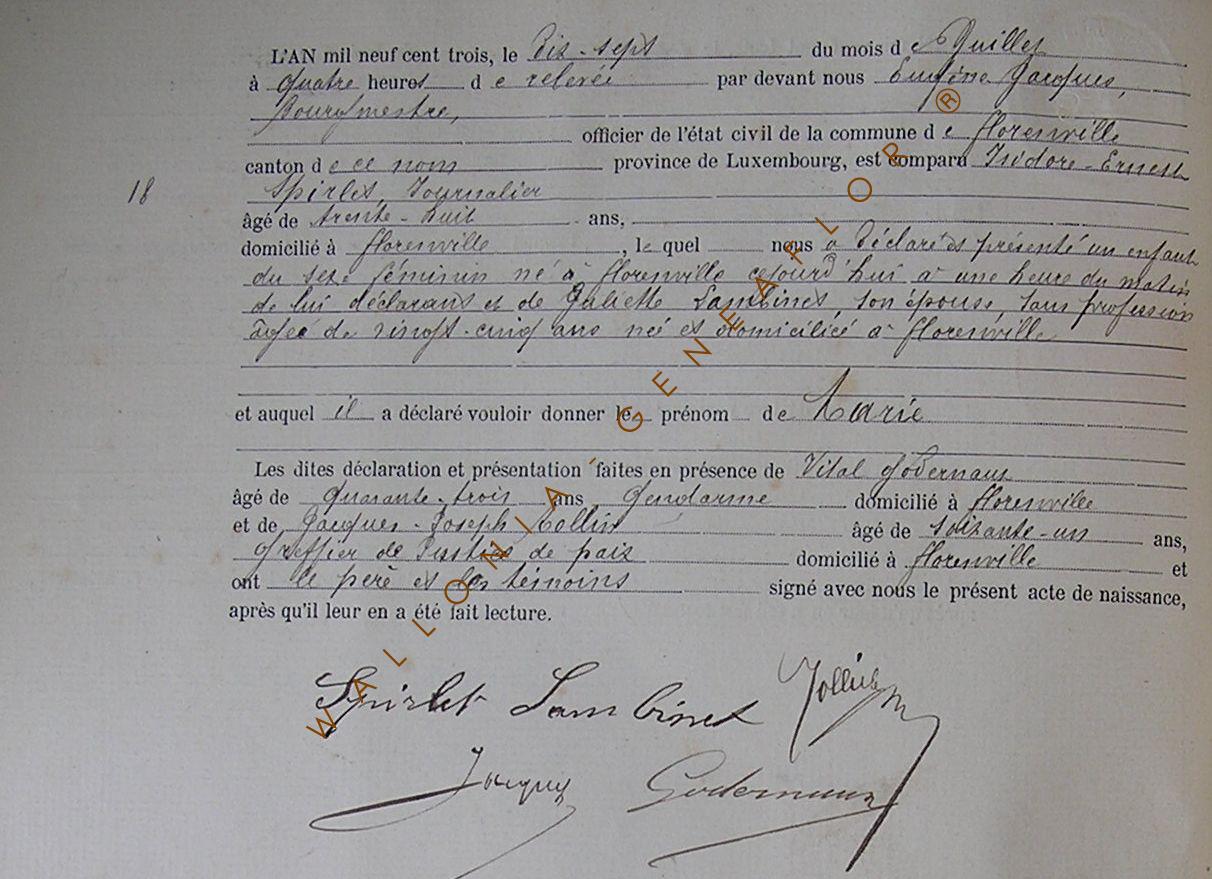 L'AN mil neuf cent trois, le Dix-sept du mois de Juillet
à quatre heures de relevée par devant nous Eugène Jacques,
Bourgmestre,
officier de l'état civil de la commune de Florenville
canton de ce nom province de Luxembourg, est comparu Isidore-Ernest
18
Spirlet, Journalier
âgé de trente-huit ans,
domicilié à Florenville, lequel nous a déclaré et présenté un enfant
du sexe féminin né à Florenville cejourd'hui à une heure du matin
de lui déclarant et de Juliette Lambinet, son épouse, sans profession
âgée de vingt-cinq ans née et domiciliée à Florenville
et auquel il a déclaré vouloir donner le prénom de Marie
Les dites déclaration et présentation faites en présence de Vital Godernaux
âgé de quarante-trois ans Gendarme domicilié à Florenville
et de Jacques-Joseph Collin âgé de soixante-un ans,
Greffier de Justice de paix domicilié à Florenville et
ont le père et les témoins signé avec nous le présent acte de naissance,
après qu'il leur en a été fait lecture.
Spirlet Lambinet
Jacques Godernaux
WALLONIA-GENEAFLOR ®